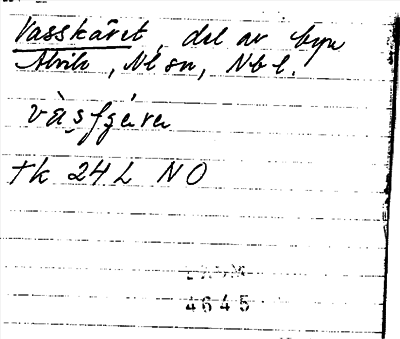 Vasskäret, del av byn
Alvik, Nl sn, Nb l.
vàsfgérə
Tk 24 L NO
4645